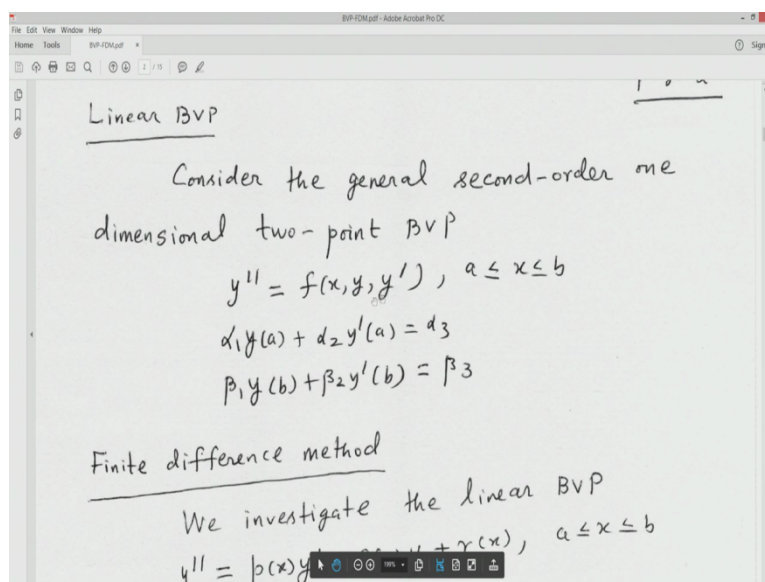 BVP-FDM.pdf - Adobe Acrobat Pro DC
File Edit View Window Help
Home Tools BVP-FDM.pdf × Sign
2 / 15
Linear BVP
Consider the general second-order one
dimensional two-point BVP
y'' = f(x, y, y'), a ≤ x ≤ b
α₁y(a) + α₂y'(a) = α₃
β₁y(b) + β₂y'(b) = β₃
Finite difference method
We investigate the linear BVP
y'' = p(x)y + r(x), a ≤ x ≤ b
199%